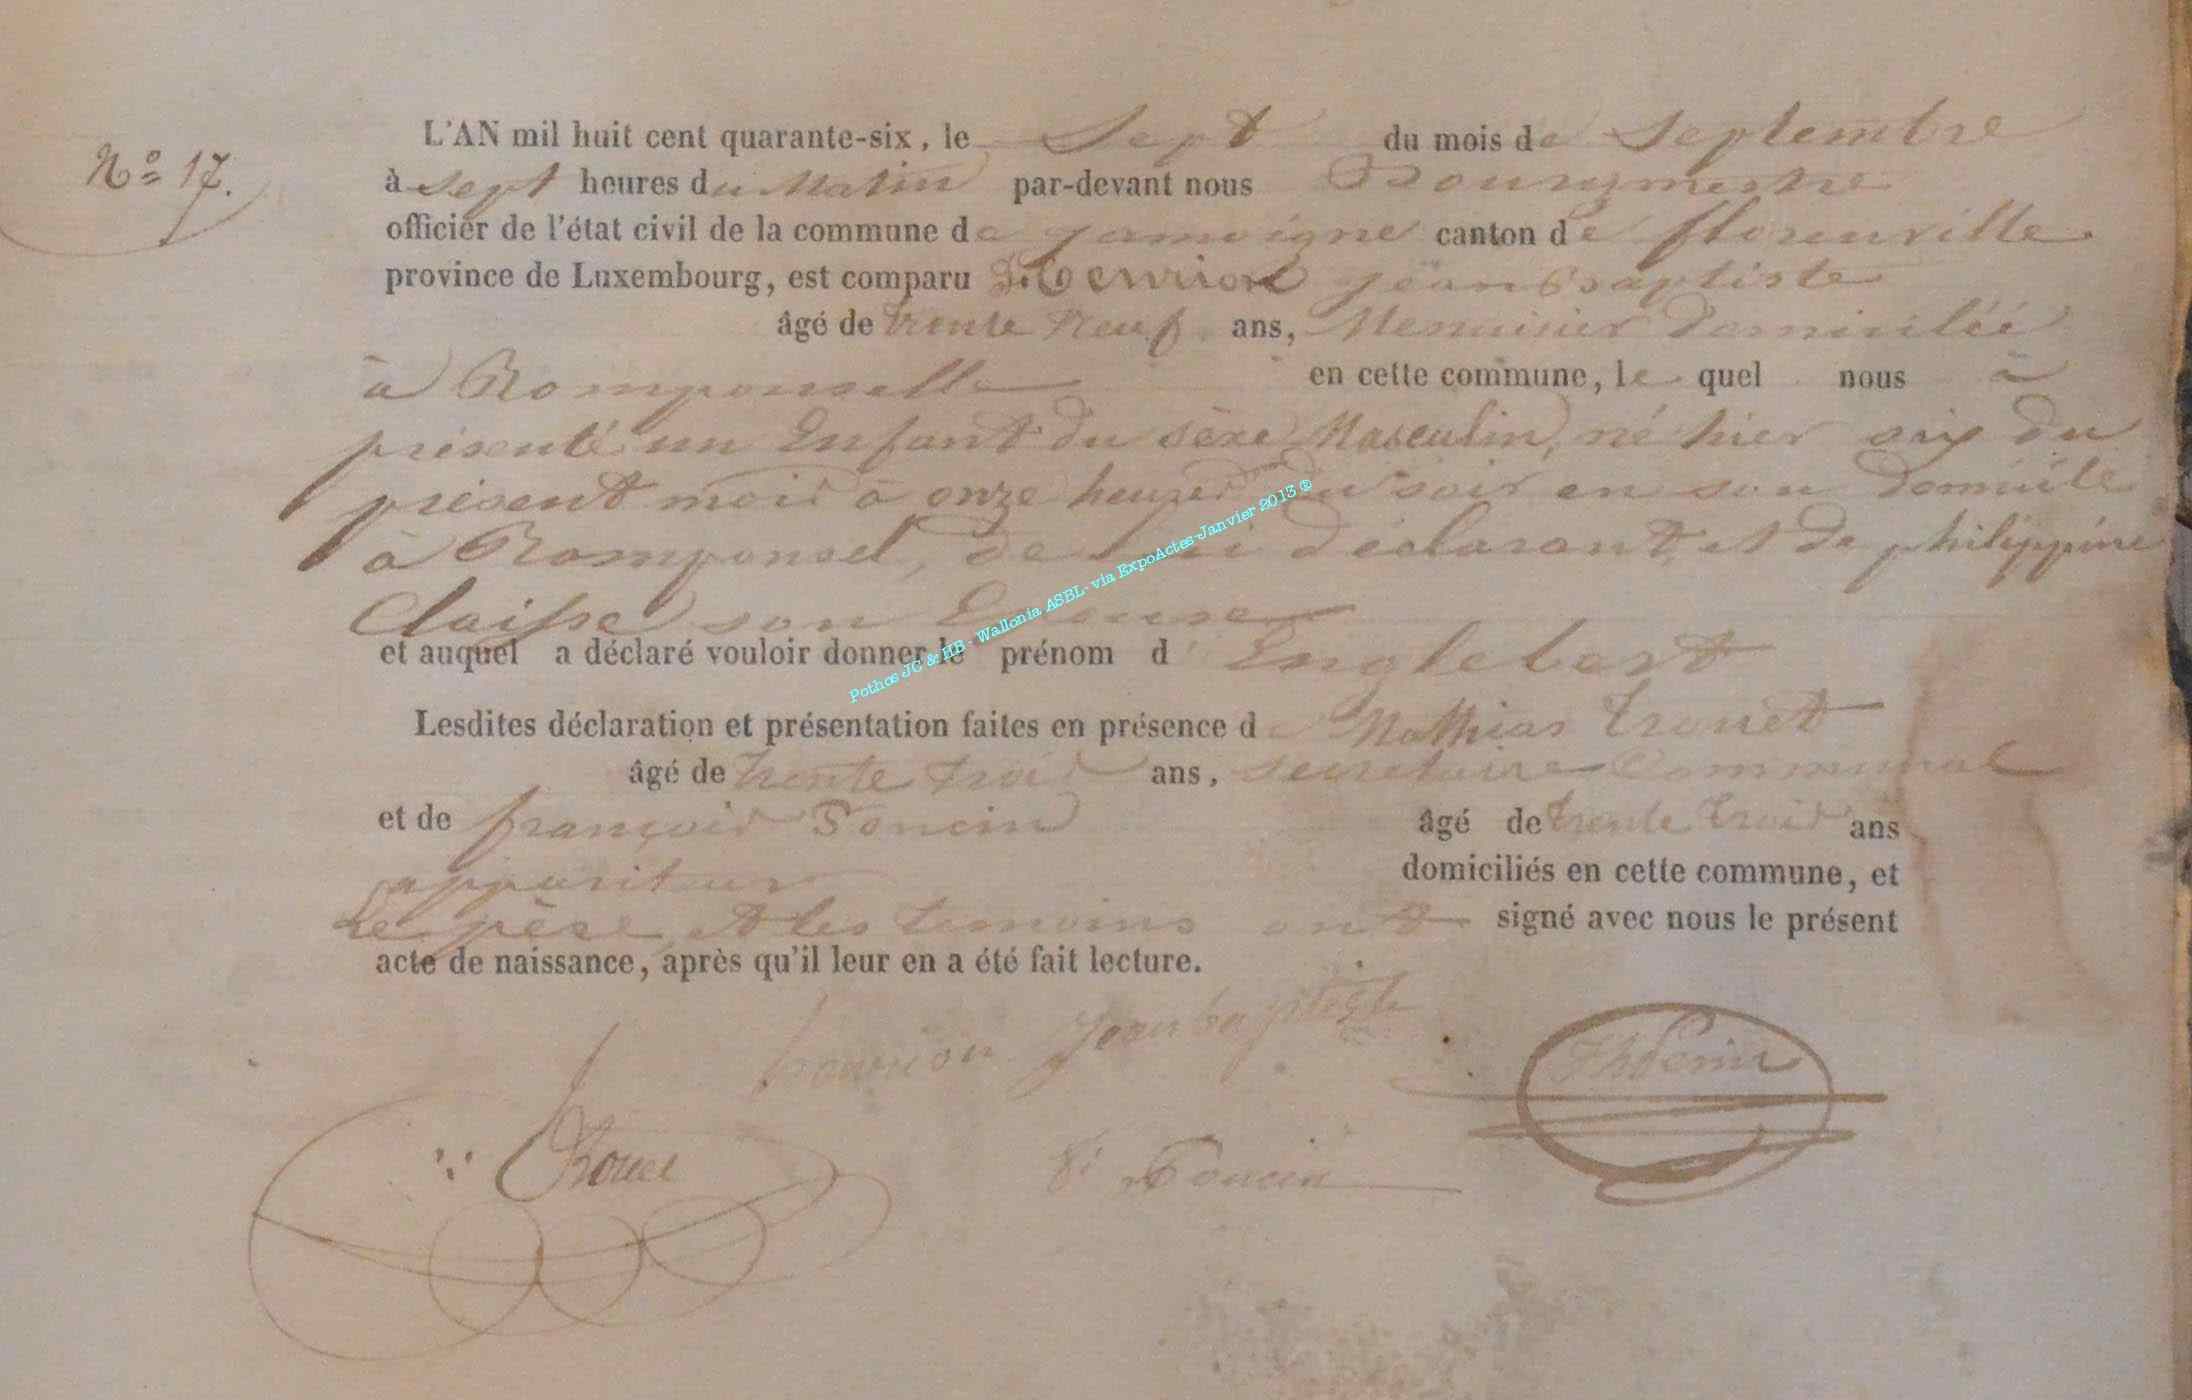 N° 17.
L'AN mil huit cent quarante-six, le Sept du mois de Septembre
à Sept heures du Matin par-devant nous Bourgmestre
officier de l'état civil de la commune de jamoigne canton de florenville
province de Luxembourg, est comparu henrion jean Baptiste
âgé de trente Neuf ans, Menuisier domiciliée
à Romponselle en cette commune, le quel nous à
présenté un Enfant du sèxe Masculin, né hier six du
présent mois à onze heures du soir en son domicile
à Romponsel, de lui déclarant, et de philippine
Claisse son Epouse
et auquel a déclaré vouloir donner le prénom d'Englebert
Lesdites déclaration et présentation faites en présence de Mathias trouet
âgé de trente trois ans, secretaire Communal
et de françois Poncin âgé de trente trois ans
appariteur domiciliés en cette commune, et
Le père et les temoins ont signé avec nous le présent
acte de naissance, après qu'il leur en a été fait lecture.
henrion jean baptiste
Trouet
Poncin
Pothos JC & HB - Wallonia ASBL - via ExpoActes-Janvier 2013 ®